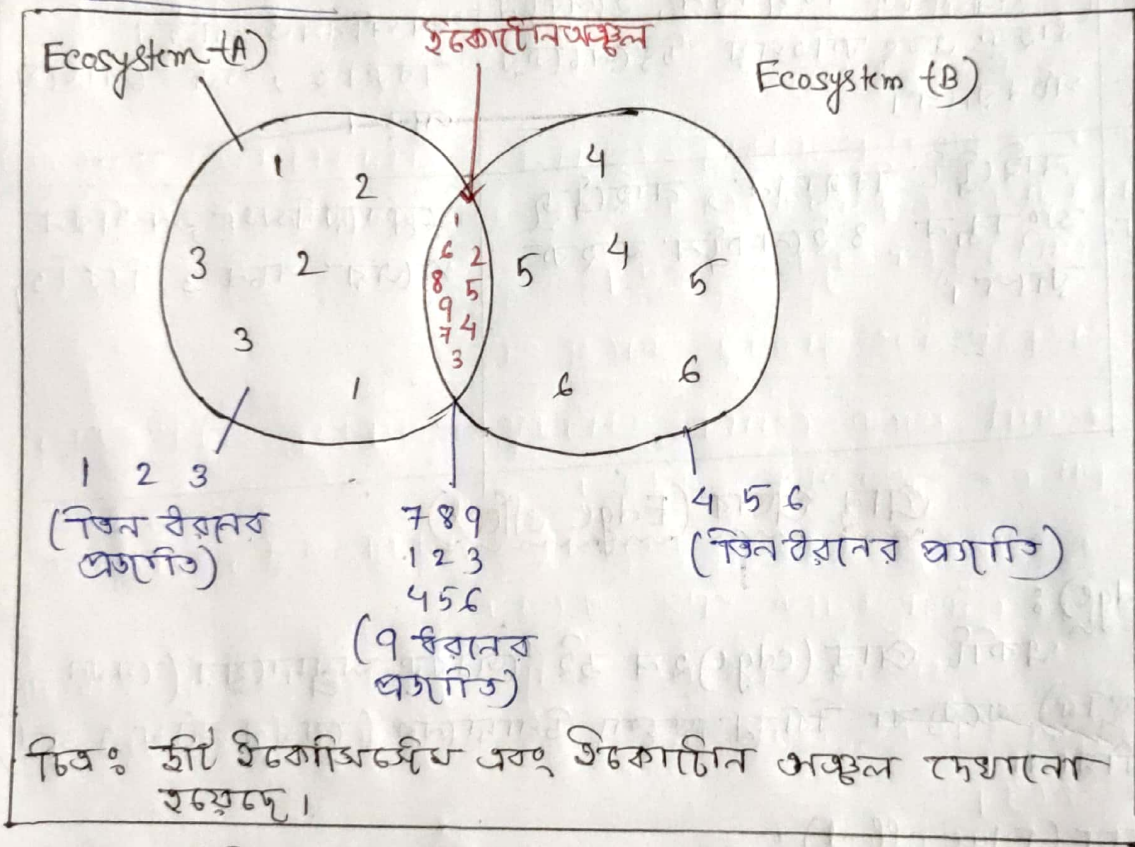 Ecosystem-(A)
ইকোটোন অঞ্চল
Ecosystem-(B)
1
2
3
2
3
1
1
6 2
8 5
9
7 4
3
4
4
5
5
6
6
1 2 3
(তিন ধরনের
প্রজাতি)
7 8 9
1 2 3
4 5 6
(9 ধরনের
প্রজাতি)
4 5 6
(তিন ধরনের প্রজাতি)
চিত্রঃ দুটি ইকোসিস্টেম এবং ইকোটোন অঞ্চল দেখানো
হয়েছে।